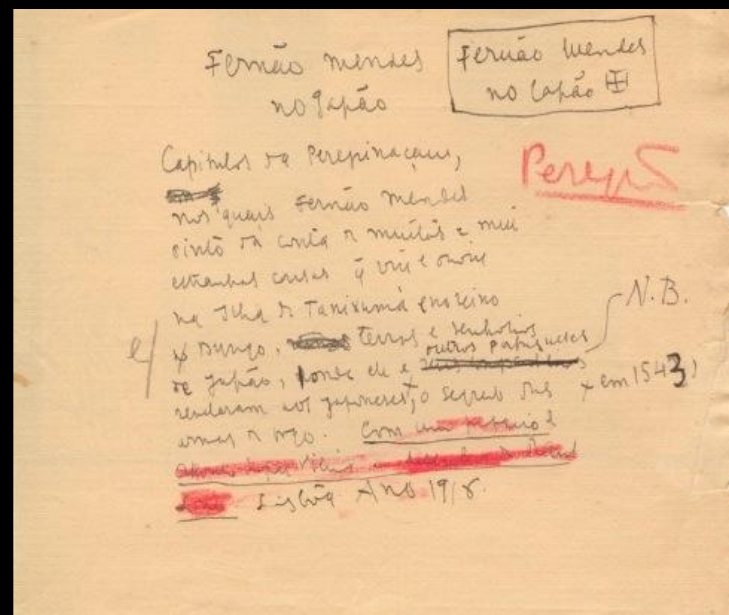 Fernão Mendes
no Japão
Fernão Mendes
no Japão
Capitulos da Peregrinaçam,
nos quais Fernão Mendes
Pinto dá conta de muitas e mui
estranhas cousas q̃ viu e ouviu
na Ilha de Tanixumá e no reino
do Bungo, terras e senhorios
de Japão, donde ele e outros portugueses
N.B.
revelaram aos japoneses, o segredo das
x em 1543)
armas de fogo. Com um
Lisbõa Ano